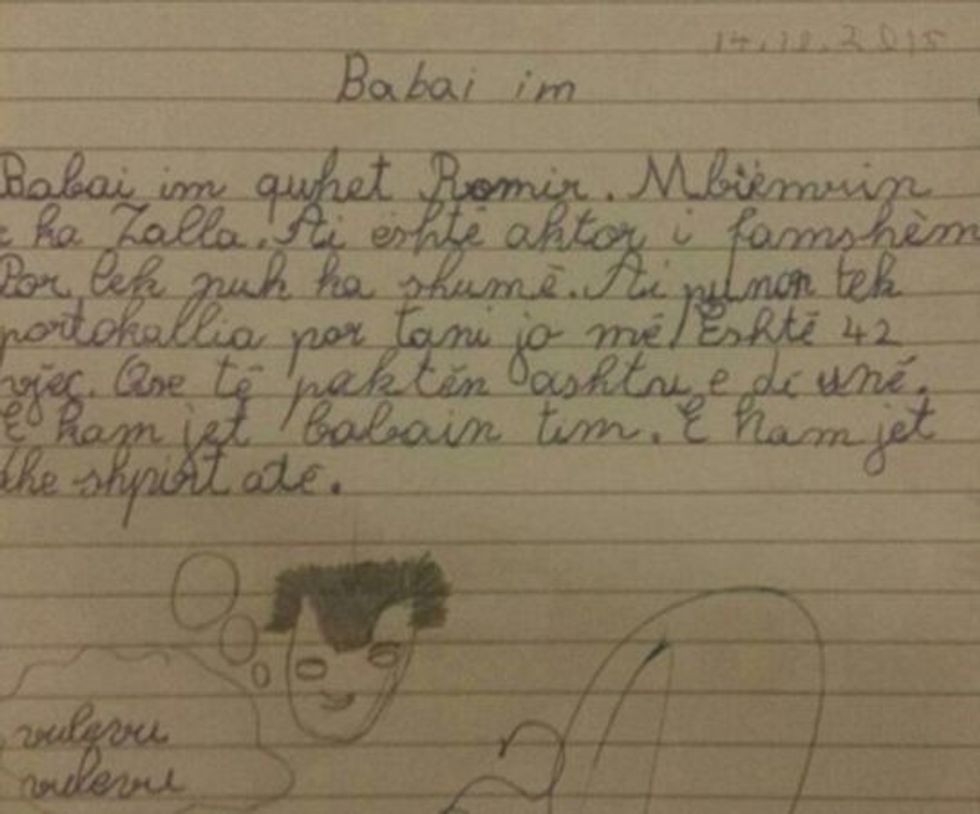 14.10.2015
Babai im
Babai im quhet Romir. Mbiemrin
e ka Zalla. Ai eshtë aktor i famshëm
Por lek nuk ka shumë. Ai punon tek
portokallia por tani jo më! Eshtë 42
vjeç. Ose të paktën ashtu e di unë.
E kam jet babain tim. E kam jet
dhe shpirt atë.
vulevu
vulevu